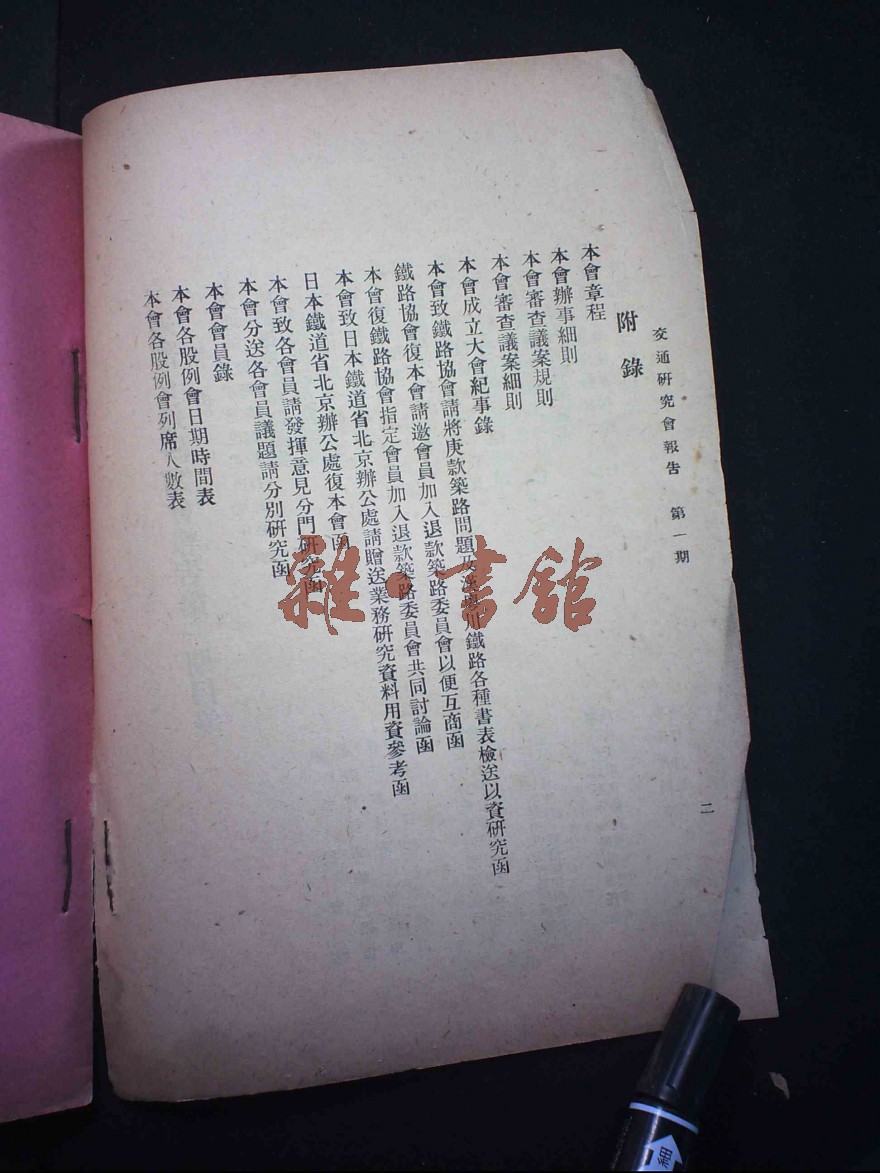 交通研究會報告 第一期
二
附錄
本會章程
本會辦事細則
本會審查議案規則
本會審查議案細則
本會成立大會紀事錄
本會致鐵路協會請將庚款築路問題及 川鐵路各種書表檢送以資研究函
鐵路協會復本會請邀會員加入退款築路委員會以便互商函
本會復鐵路協會指定會員加入退款築路委員會共同討論函
本會致日本鐵道省北京辦公處請贈送業務研究資料用資參考函
日本鐵道省北京辦公處復本會函
本會致各會員請發揮意見分門研究函
本會分送各會員議題請分別研究函
本會會員錄
本會各股例會日期時間表
本會各股例會列席人數表
雜·書館
細